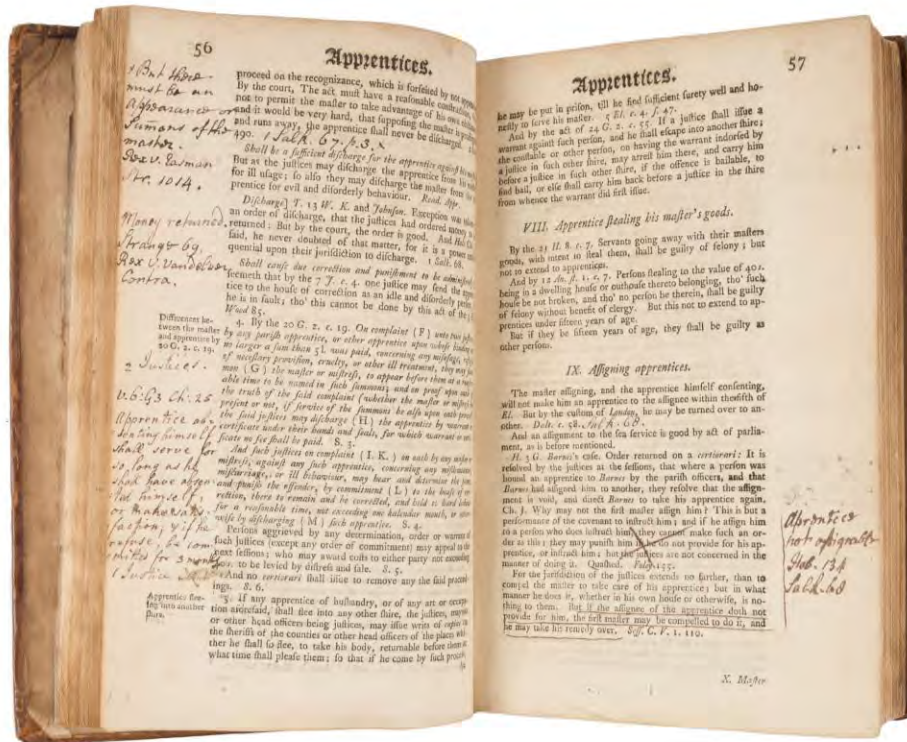 56
Apprentices.
+ But there
must be an
Appearance or
Summons of the
master.
Rex v. Easman
Str. 1014.
Money returned.
Strange 69.
Rex v. Vandeleer
Contra.
Differences be-
tween the master
and apprentice by
20 G. 2. c. 19.
2 Justices.
v. 6. G3 Ch: 25
Apprentice ab-
senting himself
shall serve for
so long as he
shall have absen-
ted himself,
or make satis-
faction, & if he
refuse, be com-
mitted for 3 months
1 Justice
Apprentices flee-
ing into another
shire.
proceed on the recognizance, which is forfeited by not
By the court, The act must have a reasonable construction,
not to permit the master to take advantage of his own
and it would be very hard, that supposing the master is
and runs away, the apprentice shall never be discharged.
490. 1 Salk. 67. p. 3. x
Shall be a sufficient discharge for the apprentice against his
But as the justices may discharge the apprentice from his
for ill usage; so also they may discharge the master from the
prentice for evil and disorderly behaviour. Read. Appr.
Discharge] T. 13 W. K. and Johnson. Exception was taken
an order of discharge, that the justices had ordered money
returned: But by the court, the order is good. And Holt Ch.
said, he never doubted of that matter, for it is a power
quential upon their jurisdiction to discharge. 1 Salk. 68.
Shall cause due correction and punishment to be administred
seemeth that by the 7 J. c. 4. one justice may send the
tice to the house of correction as an idle and disorderly person
he is in fault; tho' this cannot be done by this act of the
Wood 85.
4. By the 20 G. 2. c. 19. On complaint (F) unto two
by any parish apprentice, or other apprentice upon whose binding
no larger a sum than 5 l. was paid, concerning any misusage,
of necessary provision, cruelty, or other ill treatment, they may
mon (G) the master or mistress, to appear before them at a
able time to be named in such summons; and on proof upon
the truth of the said complaint (whether the master or mistress
present or not, if service of the summons be also upon oath proved
the said justices may discharge (H) the apprentice by warrant
certificate under their hands and seals, for which warrant or
ficate no fee shall be paid. S. 3.
And such justices on complaint (I. K.) on oath by any master
mistress, against any such apprentice, concerning any misdemeanor,
miscarriage, or ill behaviour, may hear and determine the
and punish the offender, by commitment (L) to the house of
rection, there to remain and be corrected, and held to hard labour
for a reasonable time, not exceeding one kalendar month, or
wise by discharging (M) such apprentice. S. 4.
Persons aggrieved by any determination, order or warrant
such justices (except any order of commitment) may appeal to the
next sessions; who may award costs to either party not exceeding
to be levied by distress and sale. S. 5.
And no certiorari shall issue to remove any the said
ings. S. 6.
5. If any apprentice of husbandry, or of any art or
tion aforesaid, shall flee into any other shire, the justices,
or other head officers being justices, may issue writs of capias
the sheriffs of the counties or other head officers of the places
ther he shall so flee, to take his body, returnable before them
what time shall please them; so that if he come by such process
57
Apprentices.
he may be put in prison, till he find sufficient surety well and ho-
nestly to serve his master. 5 El. c. 4. s. 47.
And by the act of 24 G. 2. c. 55. If a justice shall issue a
warrant against such person, and he shall escape into another shire;
the constable or other person, on having the warrant indorsed by
a justice in such other shire, may arrest him there, and carry him
before a justice in such other shire, if the offence is bailable, to
find bail, or else shall carry him back before a justice in the shire
from whence the warrant did first issue.
VIII. Apprentice stealing his master's goods.
By the 21 H. 8. c. 7. Servants going away with their masters
goods, with intent to steal them, shall be guilty of felony; but
not to extend to apprentices.
And by 12 An. st. 1. c. 7. Persons stealing to the value of 40s.
being in a dwelling house or outhouse thereto belonging, tho' such
house be not broken, and tho' no person be therein, shall be guilty
of felony without benefit of clergy. But this not to extend to ap-
prentices under fifteen years of age.
But if they be fifteen years of age, they shall be guilty as
other persons.
IX. Assigning apprentices.
The master assigning, and the apprentice himself consenting,
will not make him an apprentice to the assignee within the 5th of
El. But by the custom of London, he may be turned over to an-
other. Dalt. c. 58. Salk. 68.
And an assignment to the sea service is good by act of parlia-
ment, as is before mentioned.
H. 3 G. Barnes's case. Order returned on a certiorari: It is
resolved by the justices at the sessions, that where a person was
bound an apprentice to Barnes by the parish officers, and that
Barnes had assigned him to another, they resolve that the assign-
ment is void, and direct Barnes to take his apprentice again.
Ch. J. Why may not the first master assign him? This is but a
performance of the covenant to instruct him; and if he assign him
to a person who does instruct him, they cannot make such an or-
der as this; they may punish him if he do not provide for his ap-
prentice, or instruct him; but the justices are not concerned in the
manner of doing it. Quashed. Foley 155.
For the jurisdiction of the justices extends no farther, than to
compel the master to take care of his apprentice; but in what
manner he does it, whether in his own house or otherwise, is no-
thing to them. But if the assignee of the apprentice doth not
provide for him, the first master may be compelled to do it, and
he may take his remedy over. Sess. C. V. 1. 110.
Aprentice
not assignable
Hob. 134
Salk. 68
X. Master